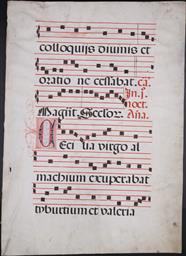 colloquijs diuinis et
oratio ne cessabat. ca.
In .j.
noct.
Magnit. Seclor. Aña.
Ceci lia virgo al
machium exuperabat
tyburtium et valeria